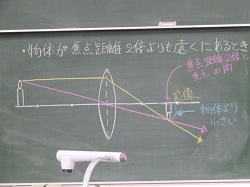 ・物体が焦点距離2倍よりも遠くにあるとき
焦点距離2倍と
焦点の間
実像
物体より
小さい